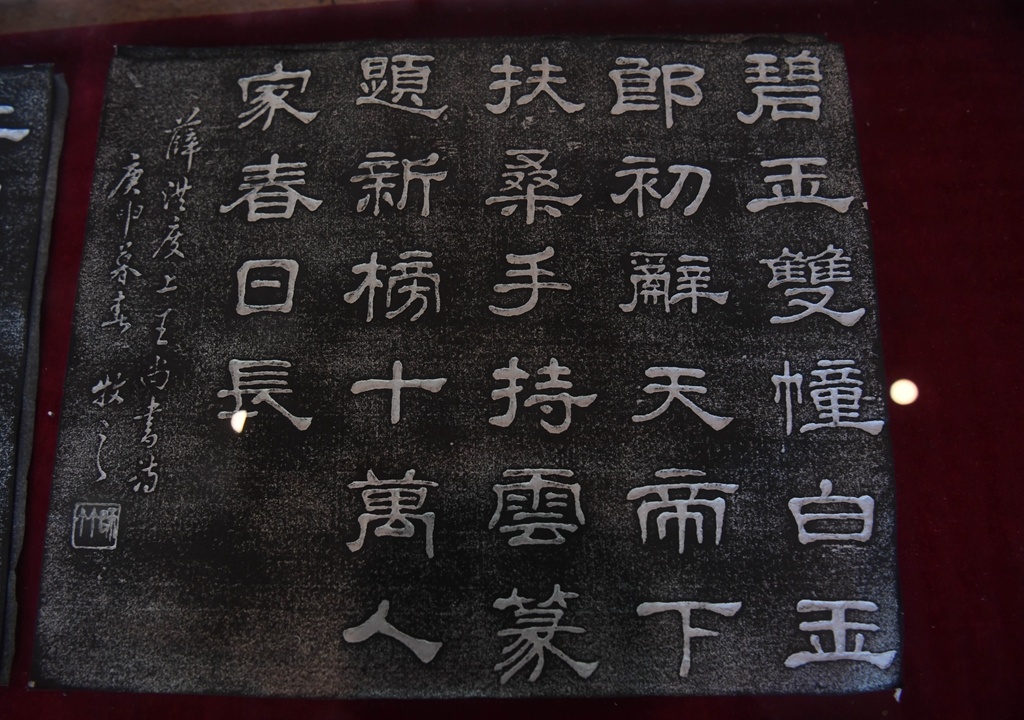 碧玉雙幢白玉
郎初辭天帝下
扶桑手持雲篆
題新榜十萬人
家春日長
薛洪度上王尚書詩
庚申暮春 牧之